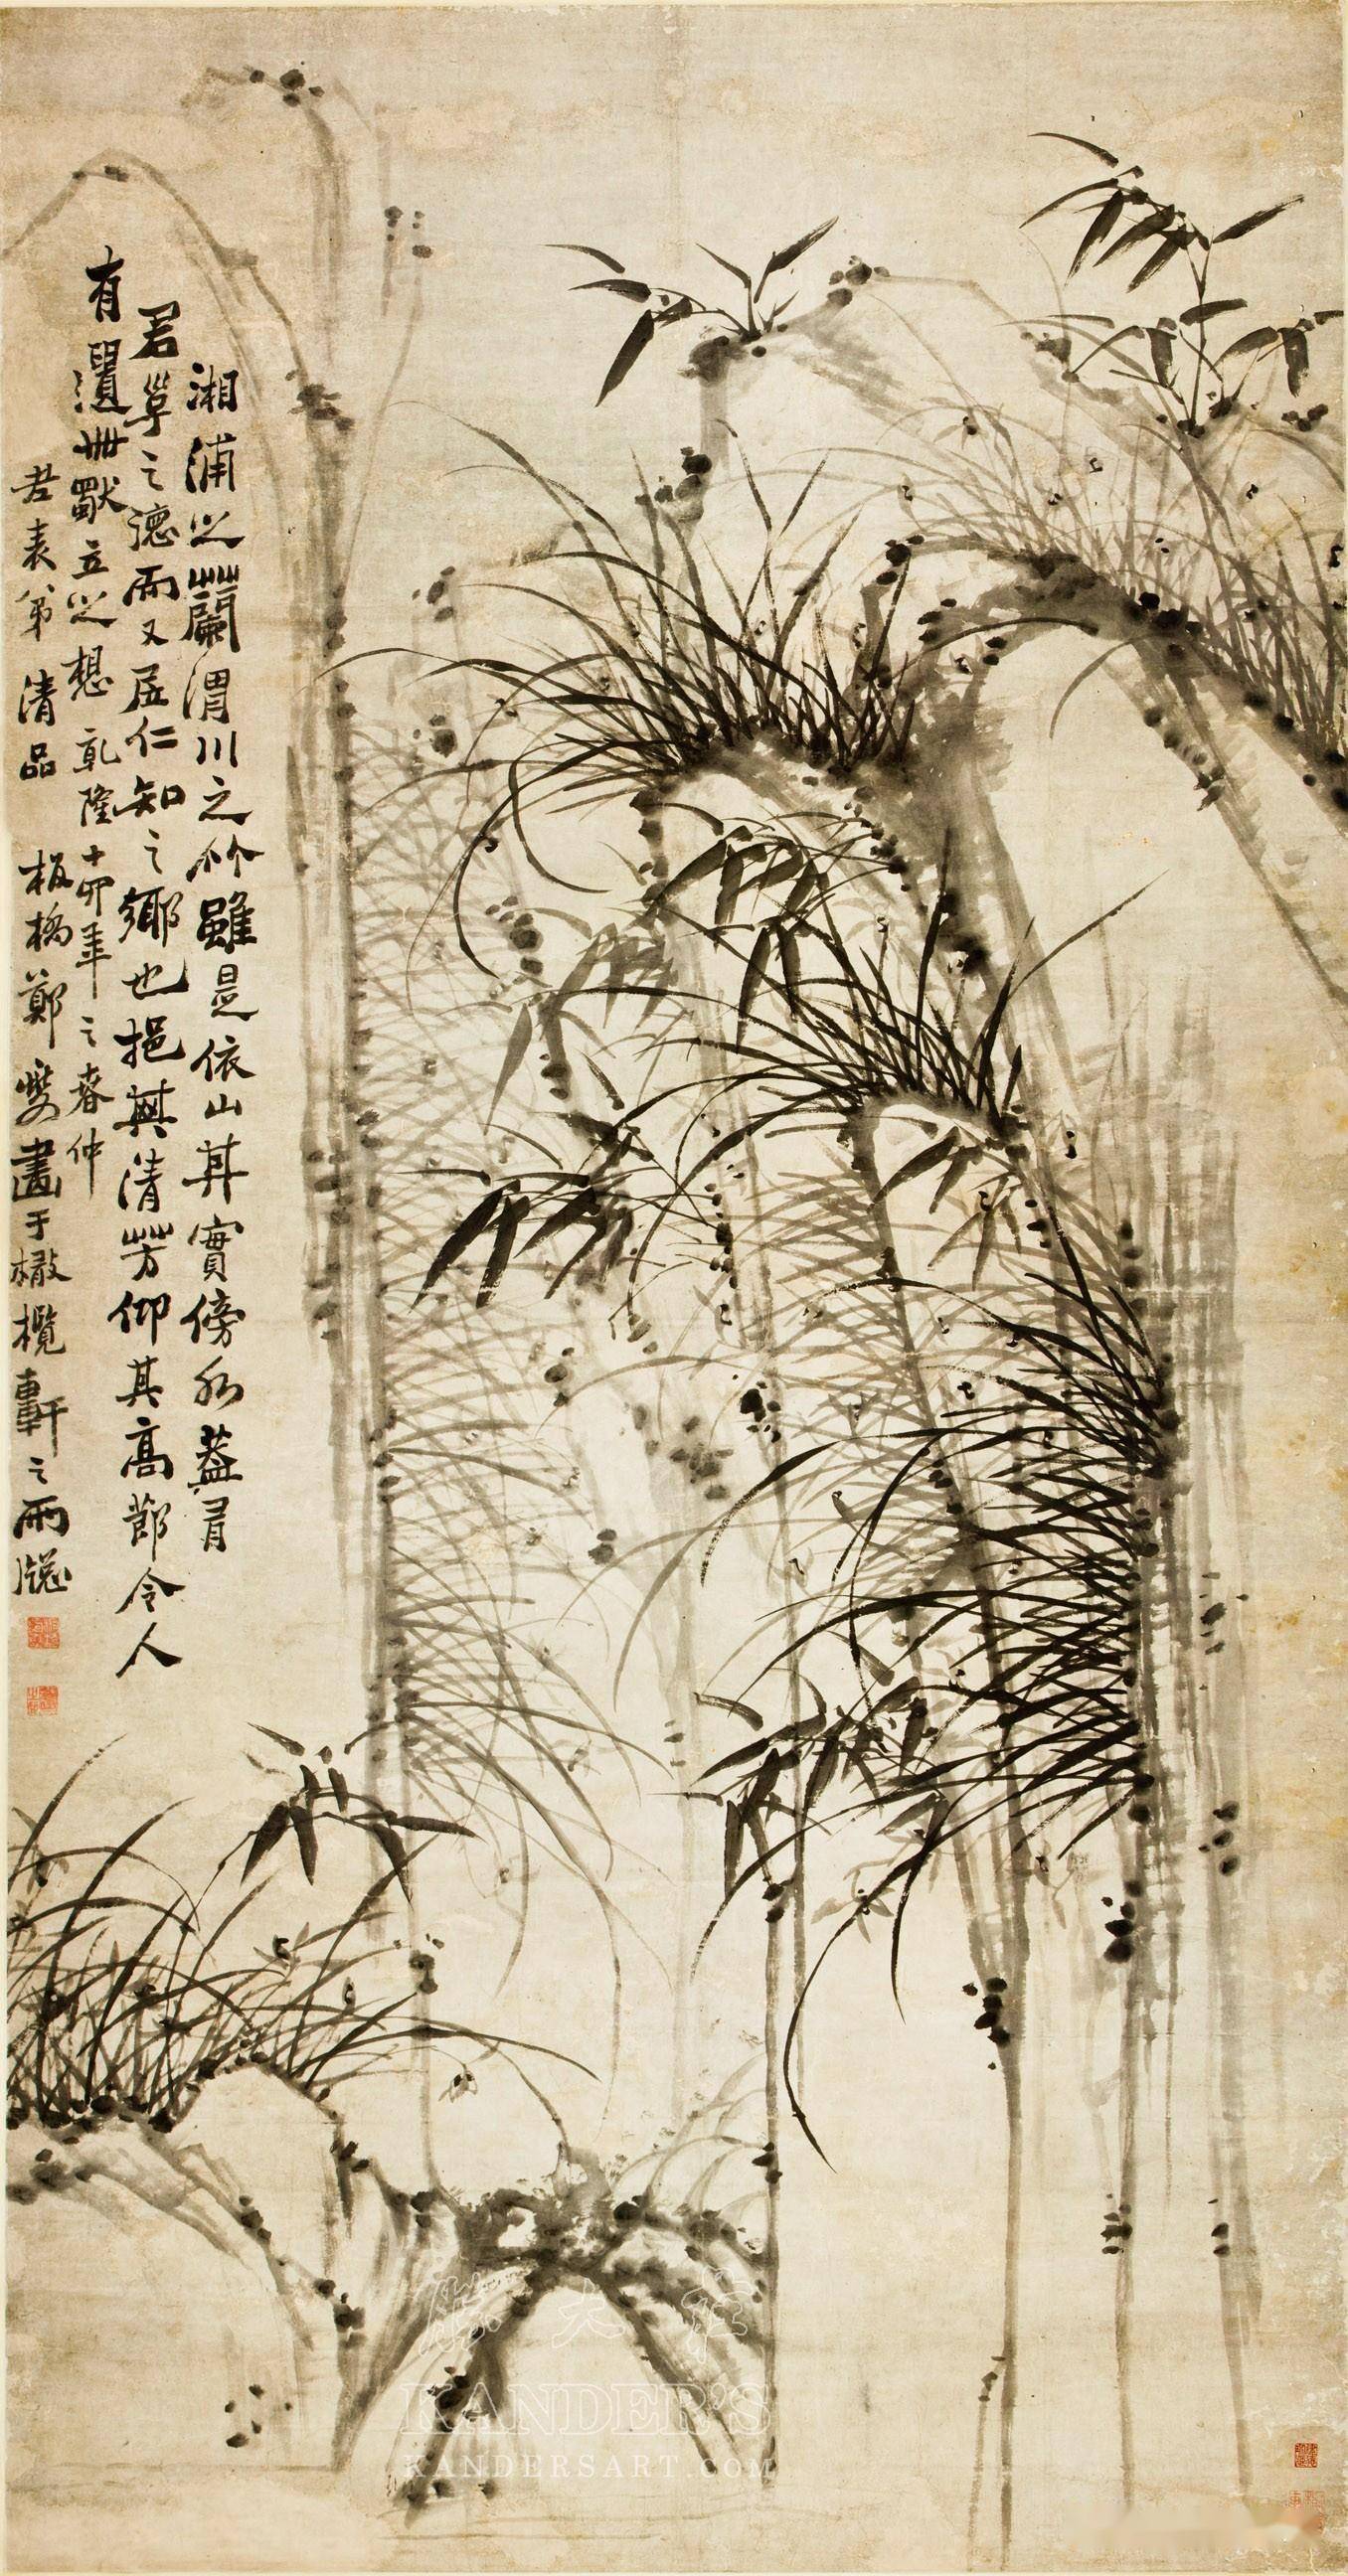 湘浦之蘭渭川之竹雖是依山其實傍水蓋有
君子之德而又居仁知之鄉也挹其清芳仰其高節令人
有遺世獨立之想 乾隆十卯年之春仲
君表弟 清品 板橋鄭燮畫于橄欖軒之雨牕
KANDER'S
KANDERSART.COM